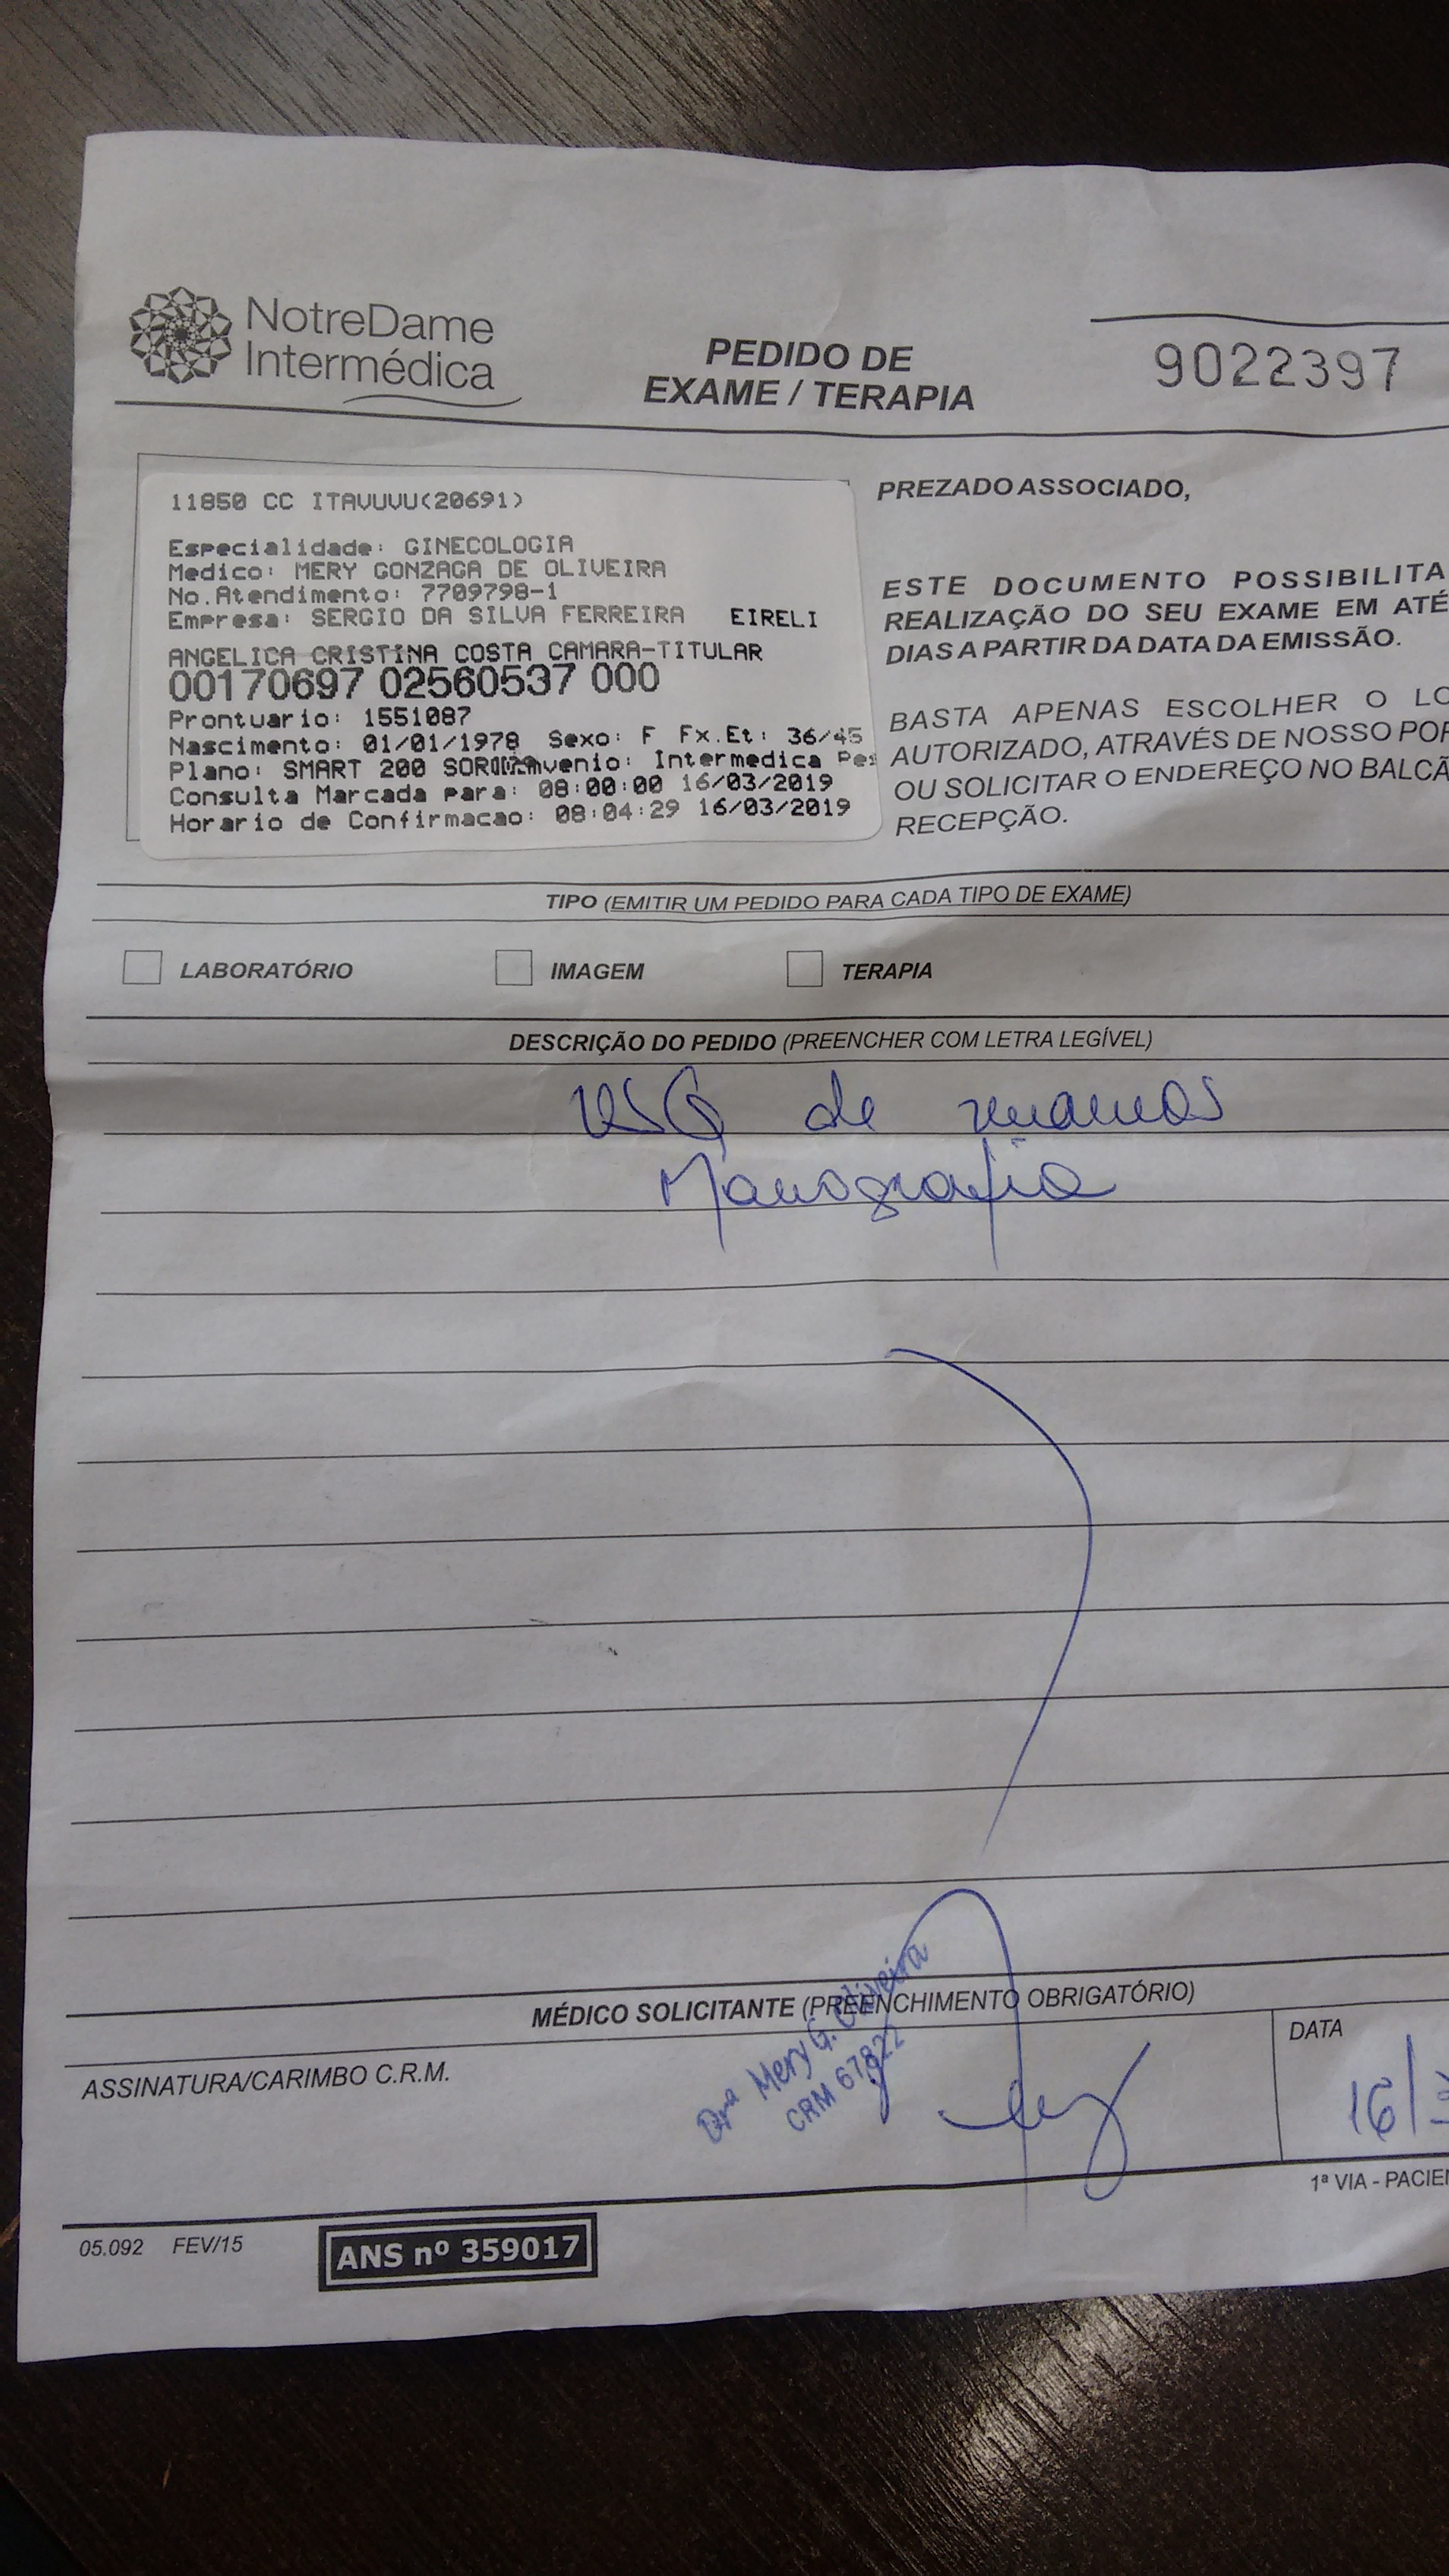 NotreDame
Intermédica
PEDIDO DE
EXAME / TERAPIA
9022397
11850 CC ITAVUVU(20691)
Especialidade: GINECOLOGIA
Medico: MERY GONZAGA DE OLIVEIRA
No.Atendimento: 7709798-1
Empresa: SERGIO DA SILVA FERREIRA EIRELI
ANGELICA CRISTINA COSTA CAMARA-TITULAR
00170697 02560537 000
Prontuario: 1551087
Nascimento: 01/01/1978 Sexo: F Fx.Et: 36/45
Plano: SMART 200 Intermedica
Consulta Marcada para: 08:00:00 16/03/2019
Horario de Confirmacao: 08:04:29 16/03/2019
PREZADO ASSOCIADO,
ESTE DOCUMENTO POSSIBILITA
REALIZAÇÃO DO SEU EXAME EM ATÉ
DIAS A PARTIR DA DATA DA EMISSÃO.
BASTA APENAS ESCOLHER O LO
AUTORIZADO, ATRAVÉS DE NOSSO POR
OU SOLICITAR O ENDEREÇO NO BALCÃ
RECEPÇÃO.
TIPO (EMITIR UM PEDIDO PARA CADA TIPO DE EXAME)
LABORATÓRIO IMAGEM TERAPIA
DESCRIÇÃO DO PEDIDO (PREENCHER COM LETRA LEGÍVEL)
USG de mamas
Mamografia
MÉDICO SOLICITANTE (PREENCHIMENTO OBRIGATÓRIO)
ASSINATURA/CARIMBO C.R.M.
Drª Mery G. Oliveira
CRM 67822
DATA
16/3
1ª VIA - PACIEN
05.092 FEV/15
ANS nº 359017